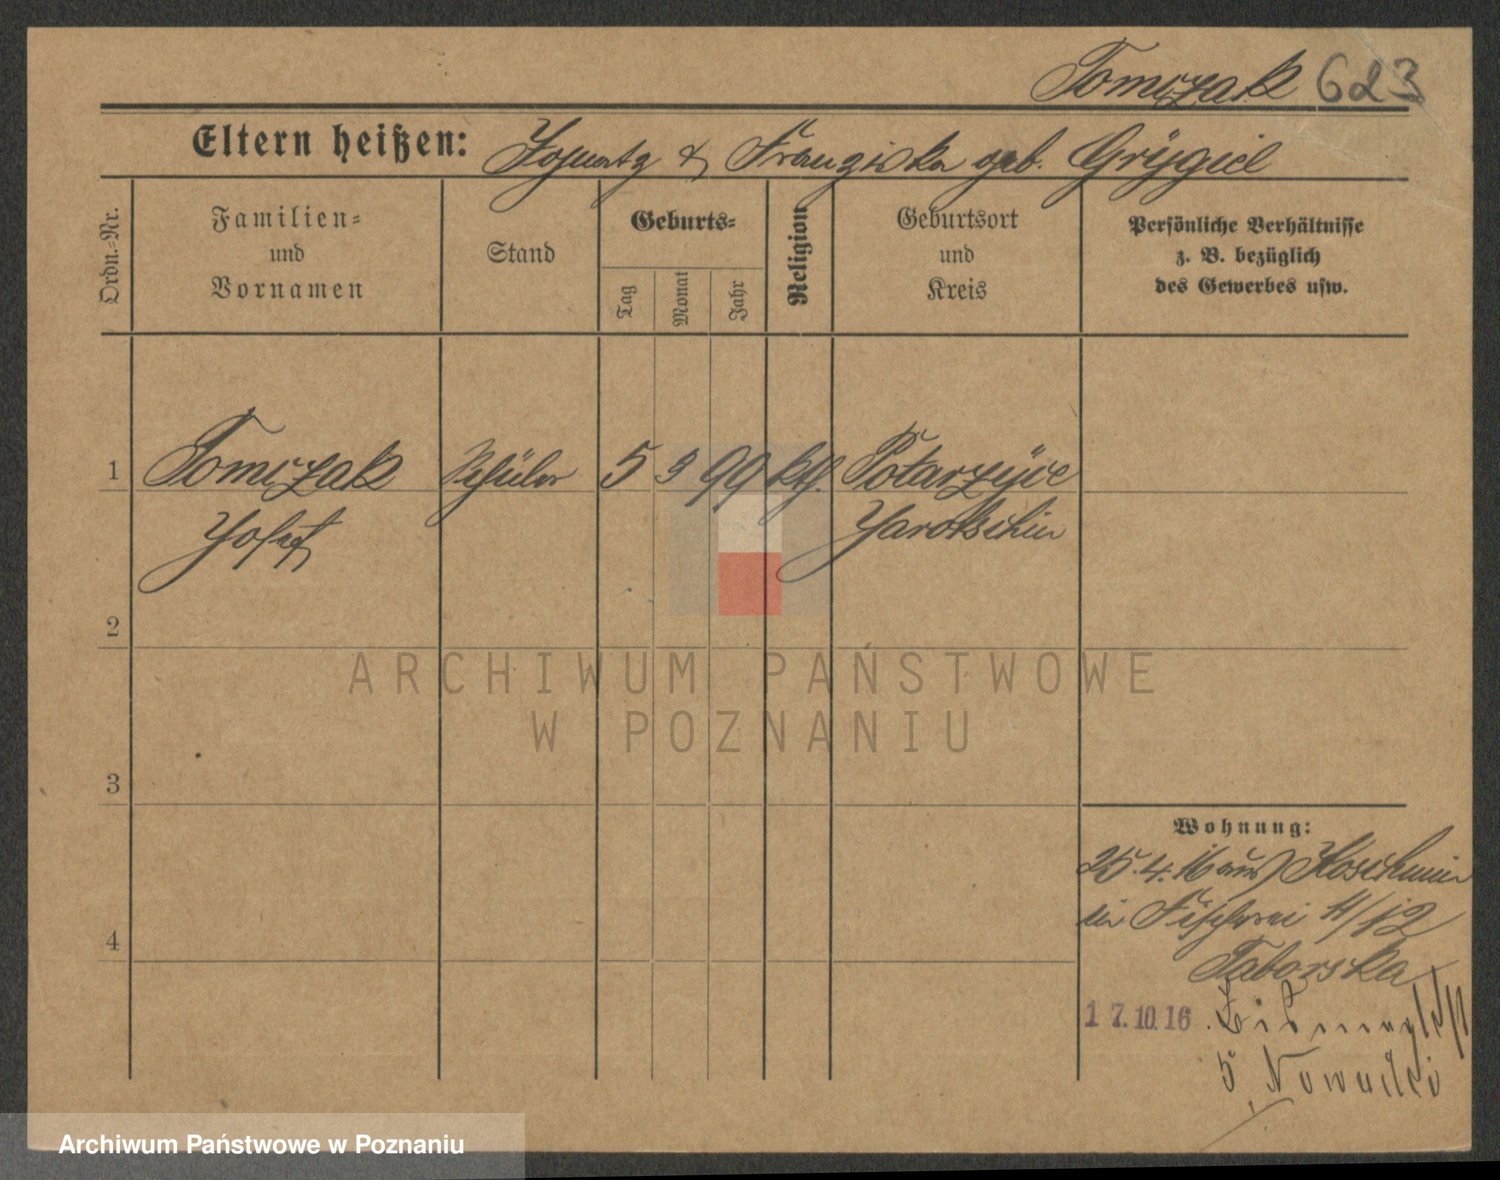 Tomczak 623
Eltern heißen: Ignatz & Franziska geb. Grÿgiel
Ordn.-Nr.
Familien-
und
Vornamen
Stand
Geburts-
Tag
Monat
Jahr
Religion
Geburtsort
und
Kreis
Persönliche Verhältnisse
z. B. bezüglich
des Gewerbes usw.
1 Tomczak Schüler 5 3 99 kth. Potarzÿce
Josef Jarotschin
2
3
4
Wohnung:
25.4.16 aus Koschmin
in Fischerei 11/12
Taborska
17.10.16
5 Nowacki
ARCHIWUM PAŃSTWOWE
W POZNANIU
Archiwum Państwowe w Poznaniu